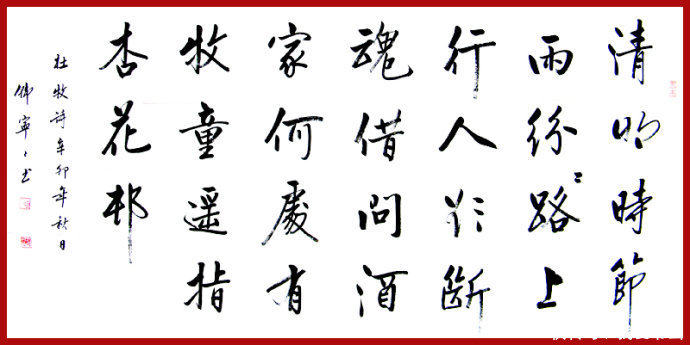 清明時節
雨紛〻路上
行人欲斷
魂借問酒
家何處有
牧童遥指
杏花邨
杜牧詩辛卯年秋日
韓寧〻书